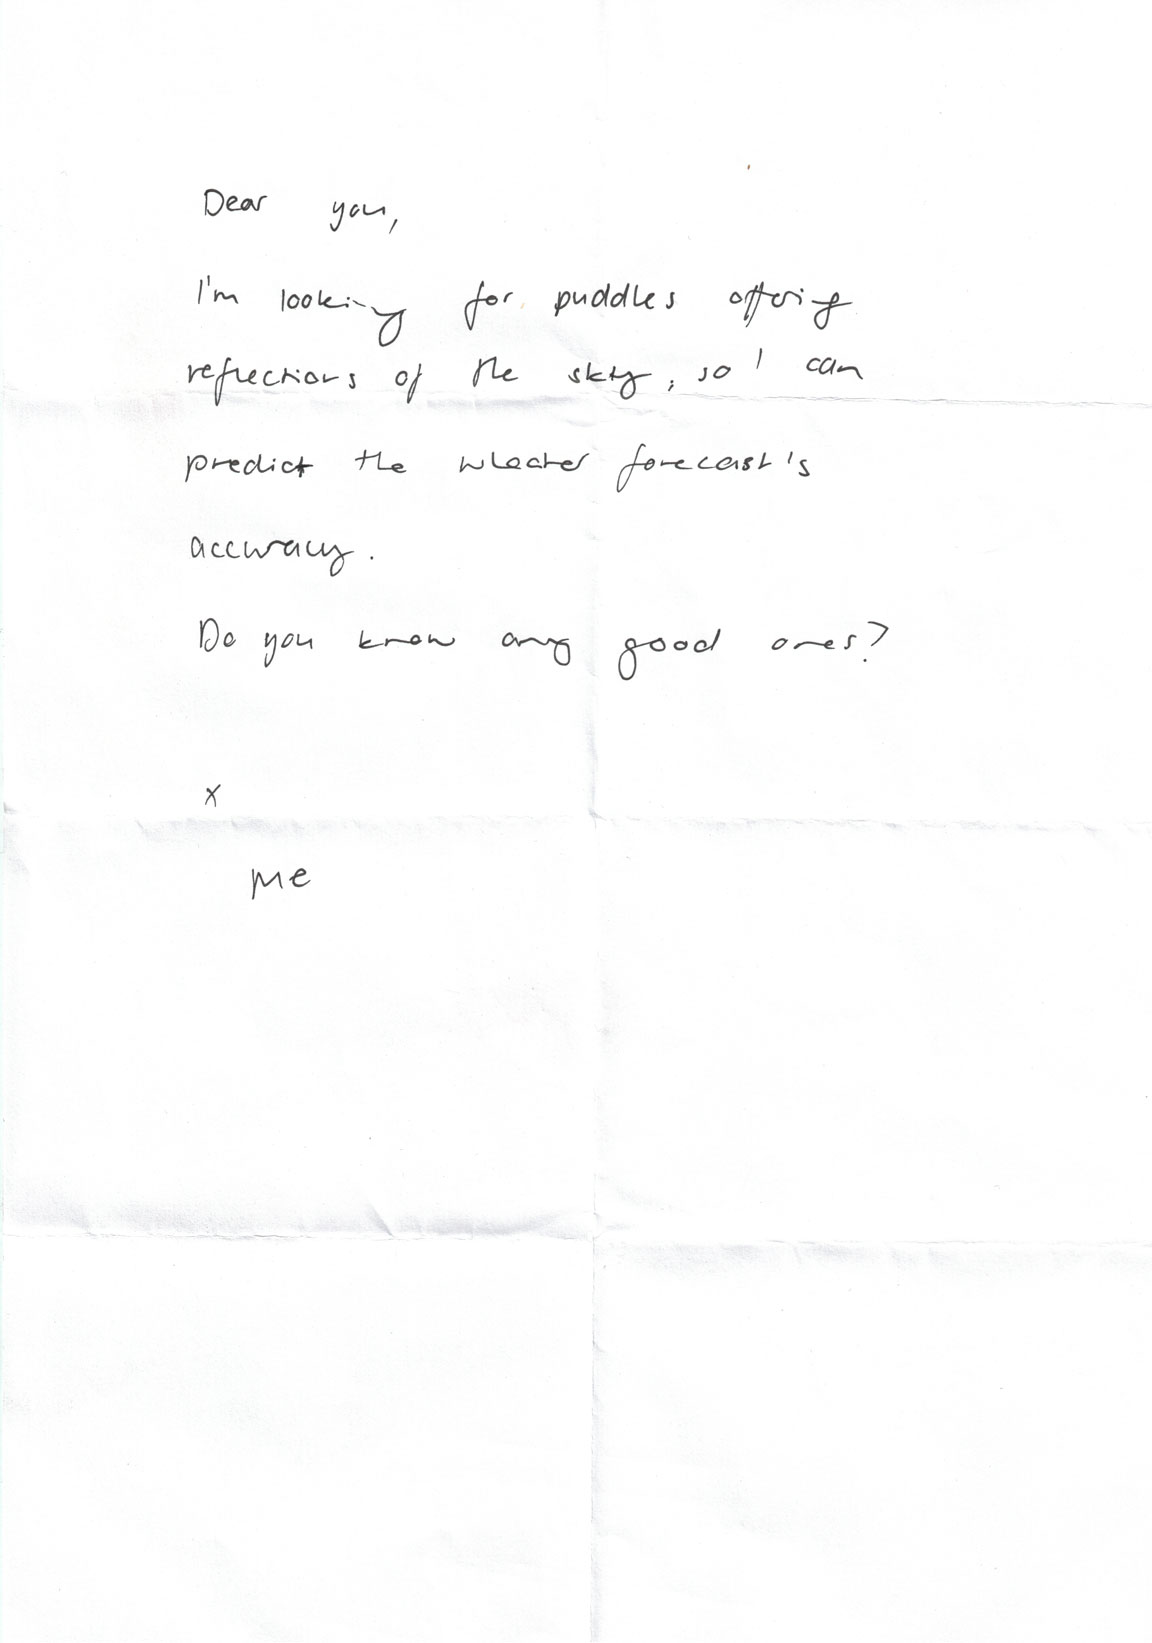 Dear you,
I'm looking for puddles offering
reflections of the sky, so I can
predict the wheather forecast's
accuracy.
Do you know any good ones?
x
me